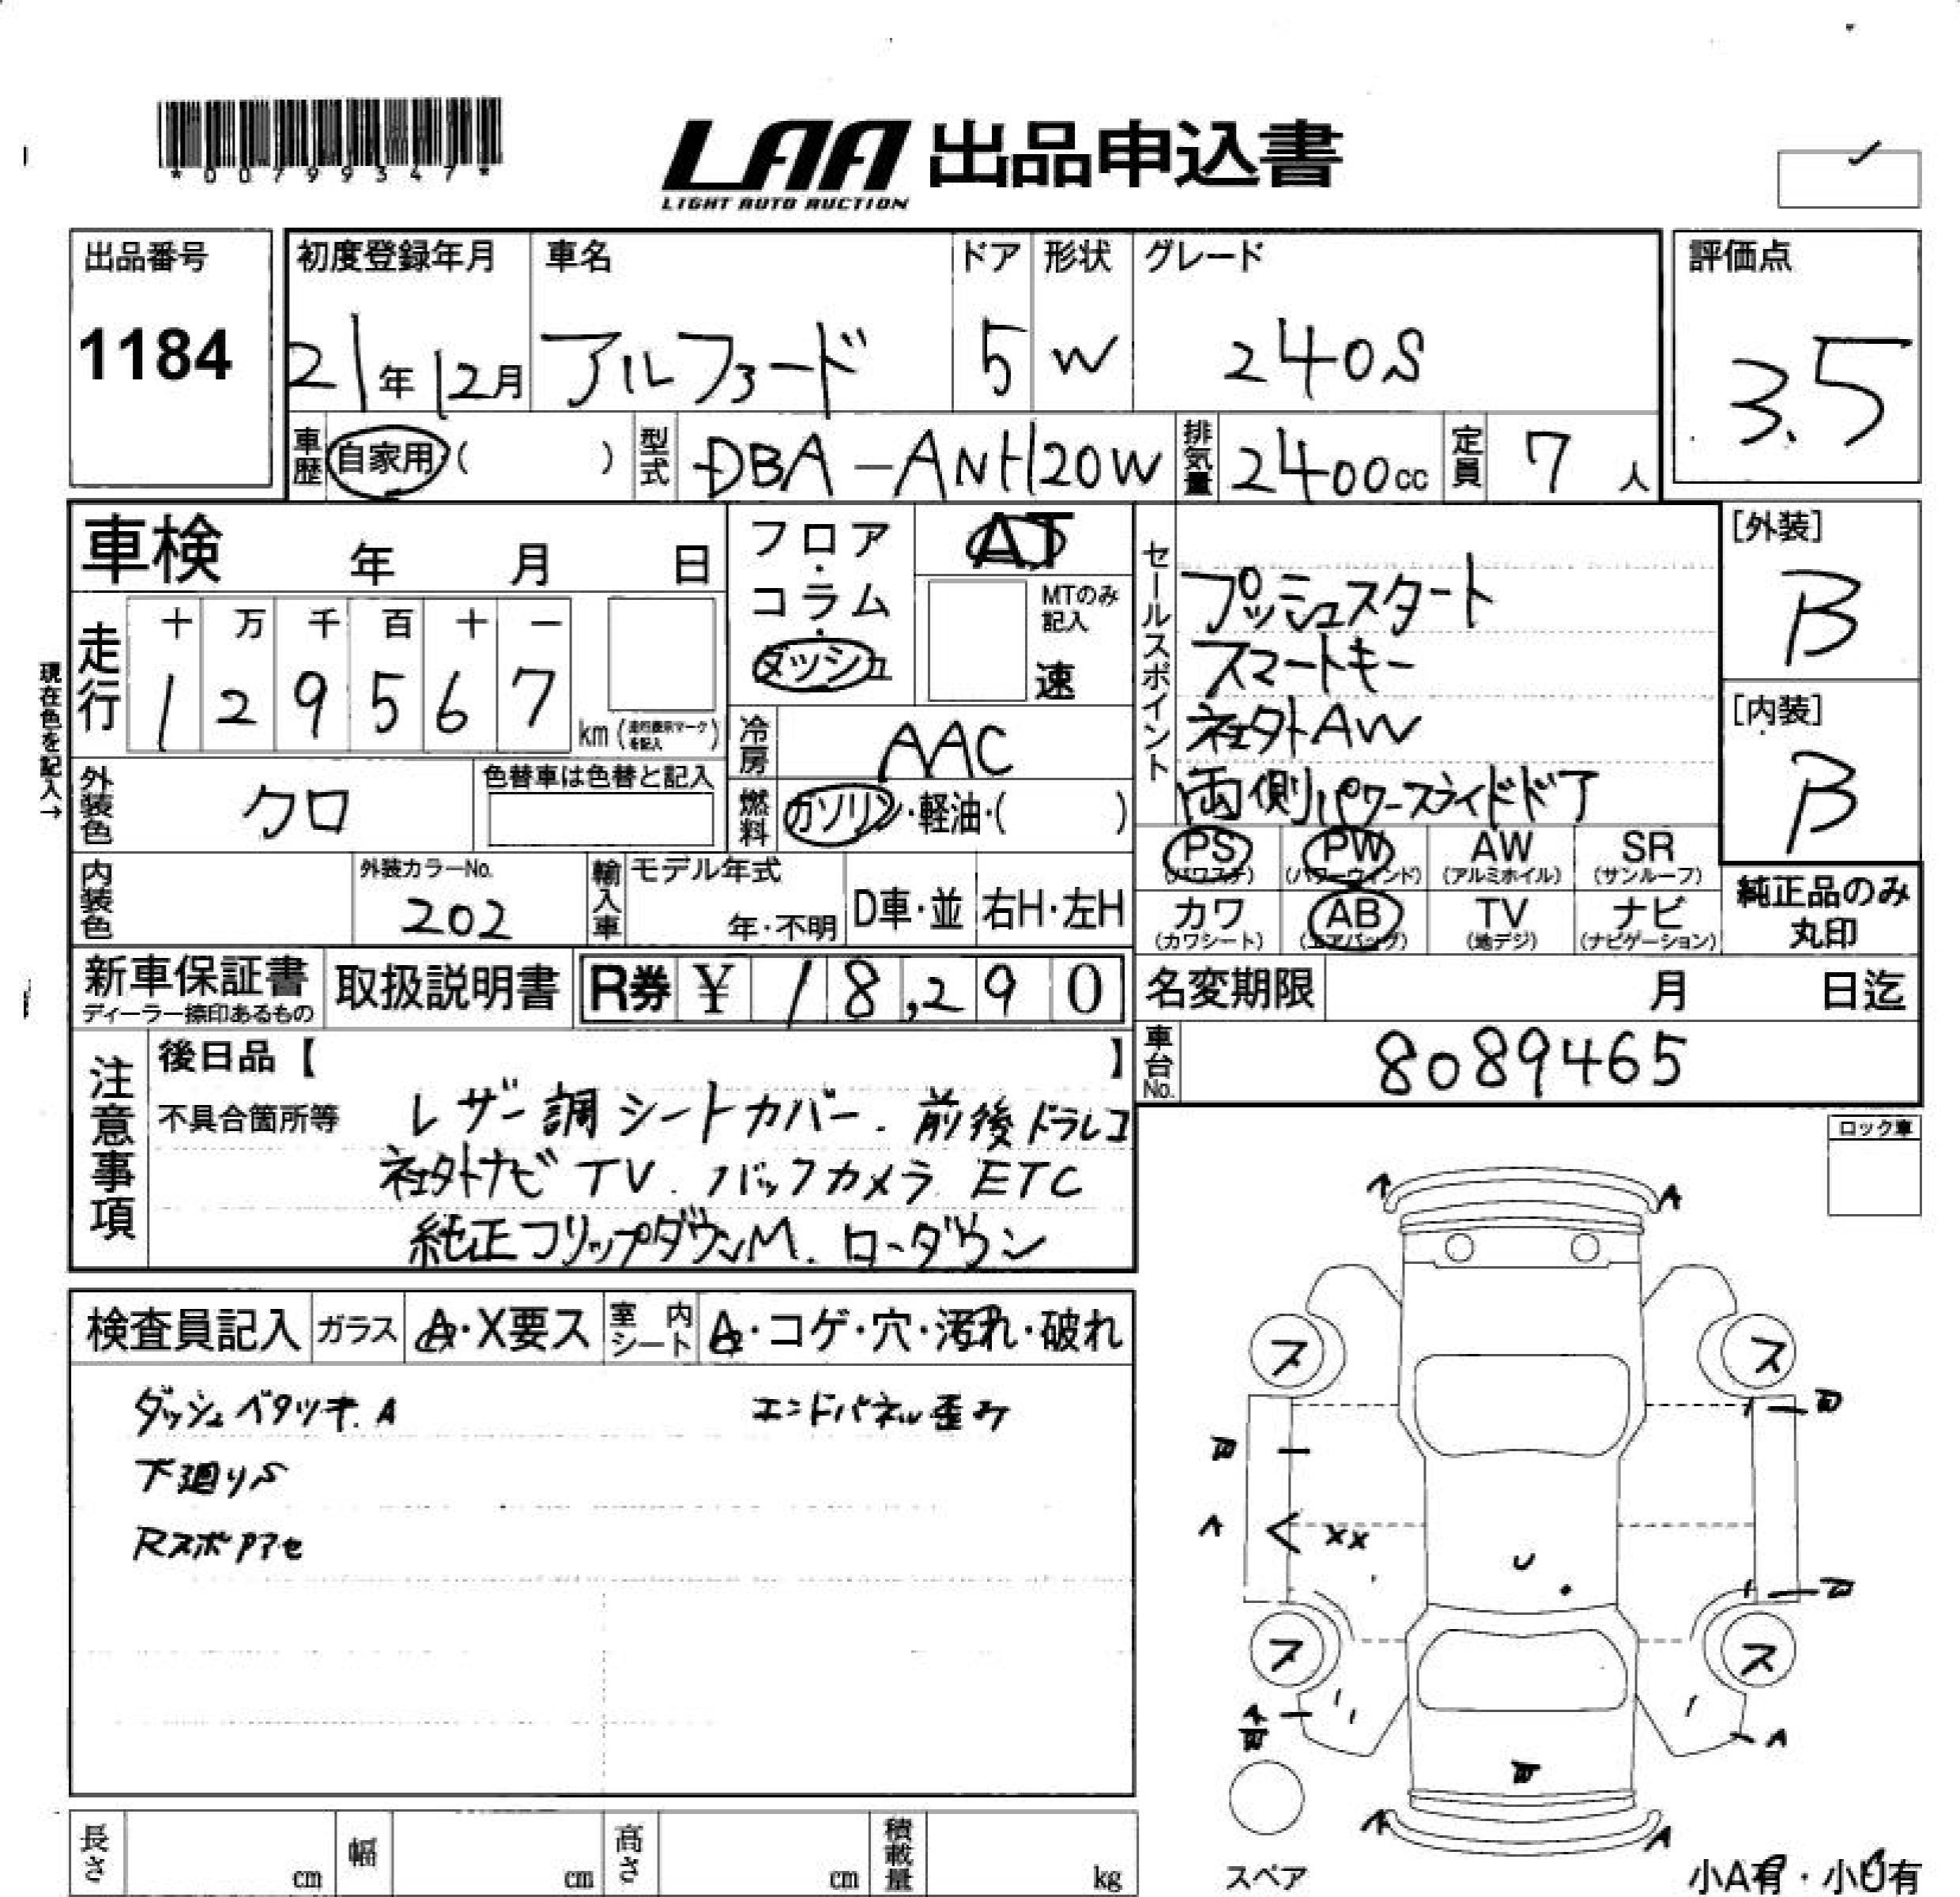 *00799347*
LAA 出品申込書
LIGHT AUTO AUCTION
出品番号
1184
初度登録年月
21年12月
車名
アルファード
ドア
5
形状
W
グレード
240S
評価点
3.5
車歴 自家用 ( )
型式 DBA-ANH20W
排気量 2400cc
定員 7人
車検 年 月 日
フロア・コラム・ダッシュ
AT
MTのみ記入
速
走行
十 万 千 百 十 一
1 2 9 5 6 7 km (走行表示マークを記入)
現在色を記入→
冷房 AAC
外装色 クロ
色替車は色替と記入
燃料 ガソリン・軽油・( )
内装色
外装カラーNo.
202
輸入車
モデル年式
年・不明
D車・並
右H・左H
セールスポイント
プッシュスタート
スマートキー
社外AW
両側パワースライドドア
[外装]
B
[内装]
B
PS (パワステ)
PW (パワーウィンド)
AW (アルミホイル)
SR (サンルーフ)
カワ (カワシート)
AB (エアバッグ)
TV (地デジ)
ナビ (ナビゲーション)
純正品のみ丸印
新車保証書
ディーラー捺印あるもの
取扱説明書
R券 ¥ 18,290
名変期限 月 日迄
車台No. 8089465
注意事項
後日品【 】
不具合箇所等
レザー調シートカバー. 前後ドラレコ
社外ナビ TV. バックカメラ ETC
純正フリップダウンM. ローダウン
ロック車
検査員記入
ガラス A・X要ス
室内シート A・コゲ・穴・汚れ・破れ
ダッシュベタツキ. A
エンドパネル歪み
下廻りS
RスポPアセ
A A
ス ス
A XX
U
ス ス
A
A A
スペア
小A有・小U有
長さ cm
幅 cm
高さ cm
積載量 kg